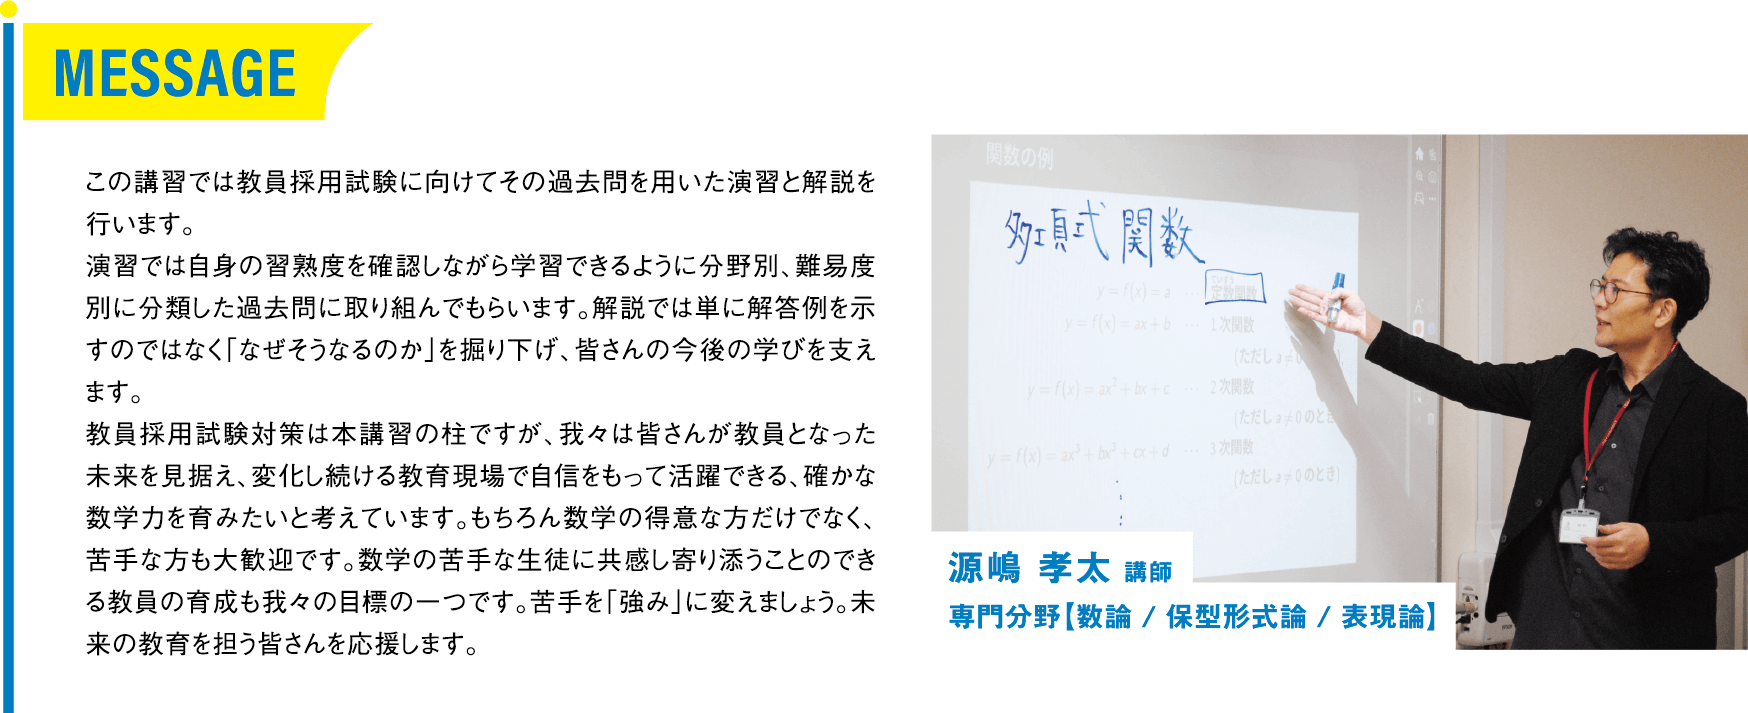 MESSAGE
この講習では教員採用試験に向けてその過去問を用いた演習と解説を
行います。
演習では自身の習熟度を確認しながら学習できるように分野別、難易度
別に分類した過去問に取り組んでもらいます。解説では単に解答例を示
すのではなく「なぜそうなるのか」を掘り下げ、皆さんの今後の学びを支え
ます。
教員採用試験対策は本講習の柱ですが、我々は皆さんが教員となった
未来を見据え、変化し続ける教育現場で自信をもって活躍できる、確かな
数学力を育みたいと考えています。もちろん数学の得意な方だけでなく、
苦手な方も大歓迎です。数学の苦手な生徒に共感し寄り添うことのでき
る教員の育成も我々の目標の一つです。苦手を「強み」に変えましょう。未
来の教育を担う皆さんを応援します。
関数の例
多項式関数
ていすう
y = f(x) = a … 定数関数
y = f(x) = ax + b … 1次関数
(ただし a ≠ 0
y = f(x) = ax² + bx + c … 2次関数
(ただし a ≠ 0 のとき
y = f(x) = ax³ + bx² + cx + d … 3次関数
(ただし a ≠ 0 のとき)
源嶋 孝太 講師
専門分野【数論 / 保型形式論 / 表現論】